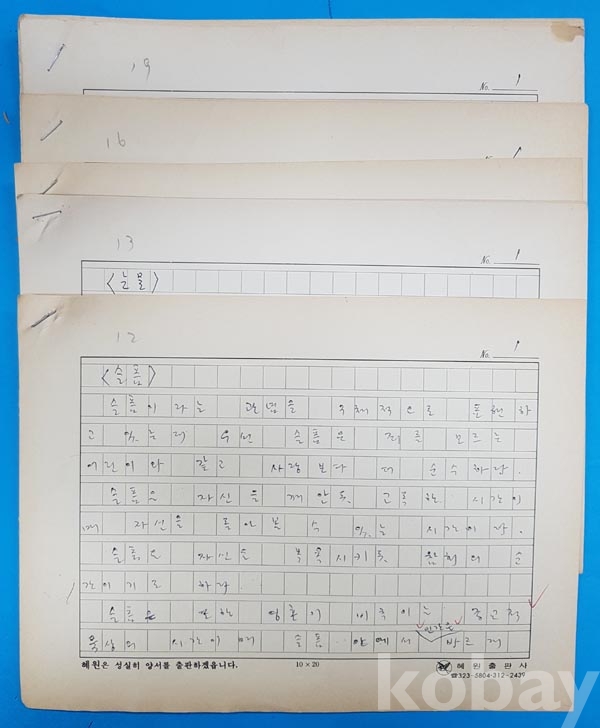 19
No. 1
16
1
13
No. 1
<눈물>
12
No. 1
<슬픔>
슬픔이라는 관념을 우회적으로 표현하
고 있는데 우선 슬픔은 죄를 모르는
어린이와 같고 사랑보다 더 순수하다.
슬픔은 자신을 껴안 고독한 시간이
며 자신을 돌아볼 수 있는 시간이다.
슬픔은 자신을 시키 의 순
간이기도 하다.
슬픔은 또한 영혼이 는 종교적
묵상의 시간이며 슬픔 앞에서 인간은 바르게
혜원은 성실히 양서를 출판하겠읍니다.
10×20
혜원출판사
☎323-5804·312-2439
kobay